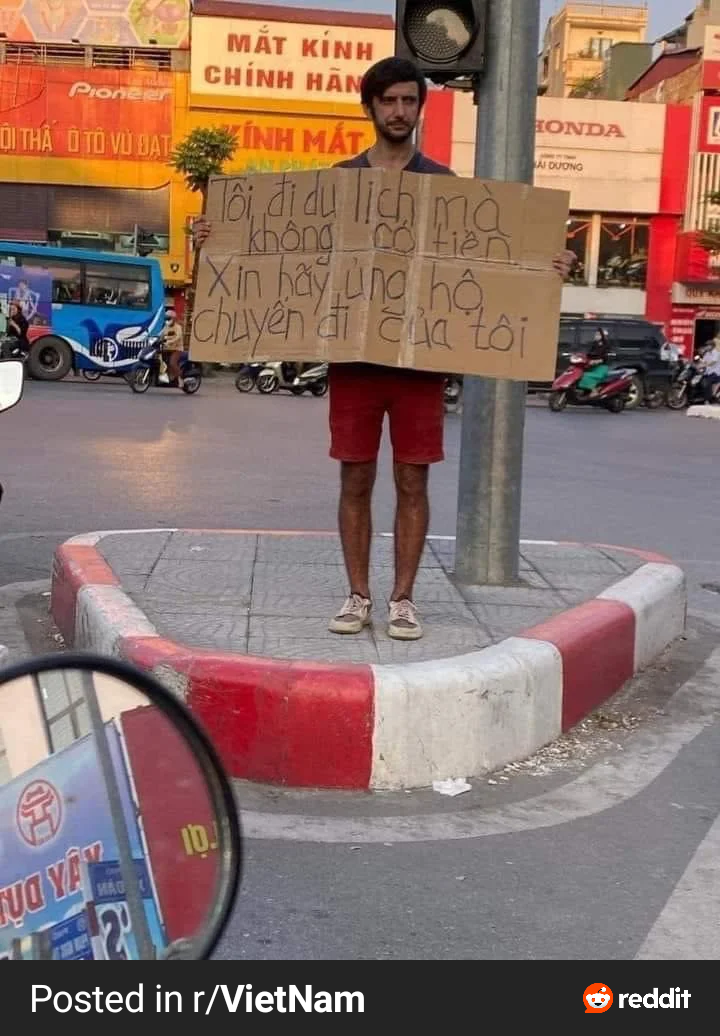 MẮT KÍNH
CHÍNH HÃN
Pioneer
ỘI THẤ Ô TÔ VŨ ĐẠT
KÍNH MẮT
HONDA
HẢI DƯƠNG
Tôi đi du lịch mà
không có tiền.
Xin hãy ủng hộ
chuyến đi của tôi
Posted in r/VietNam
reddit